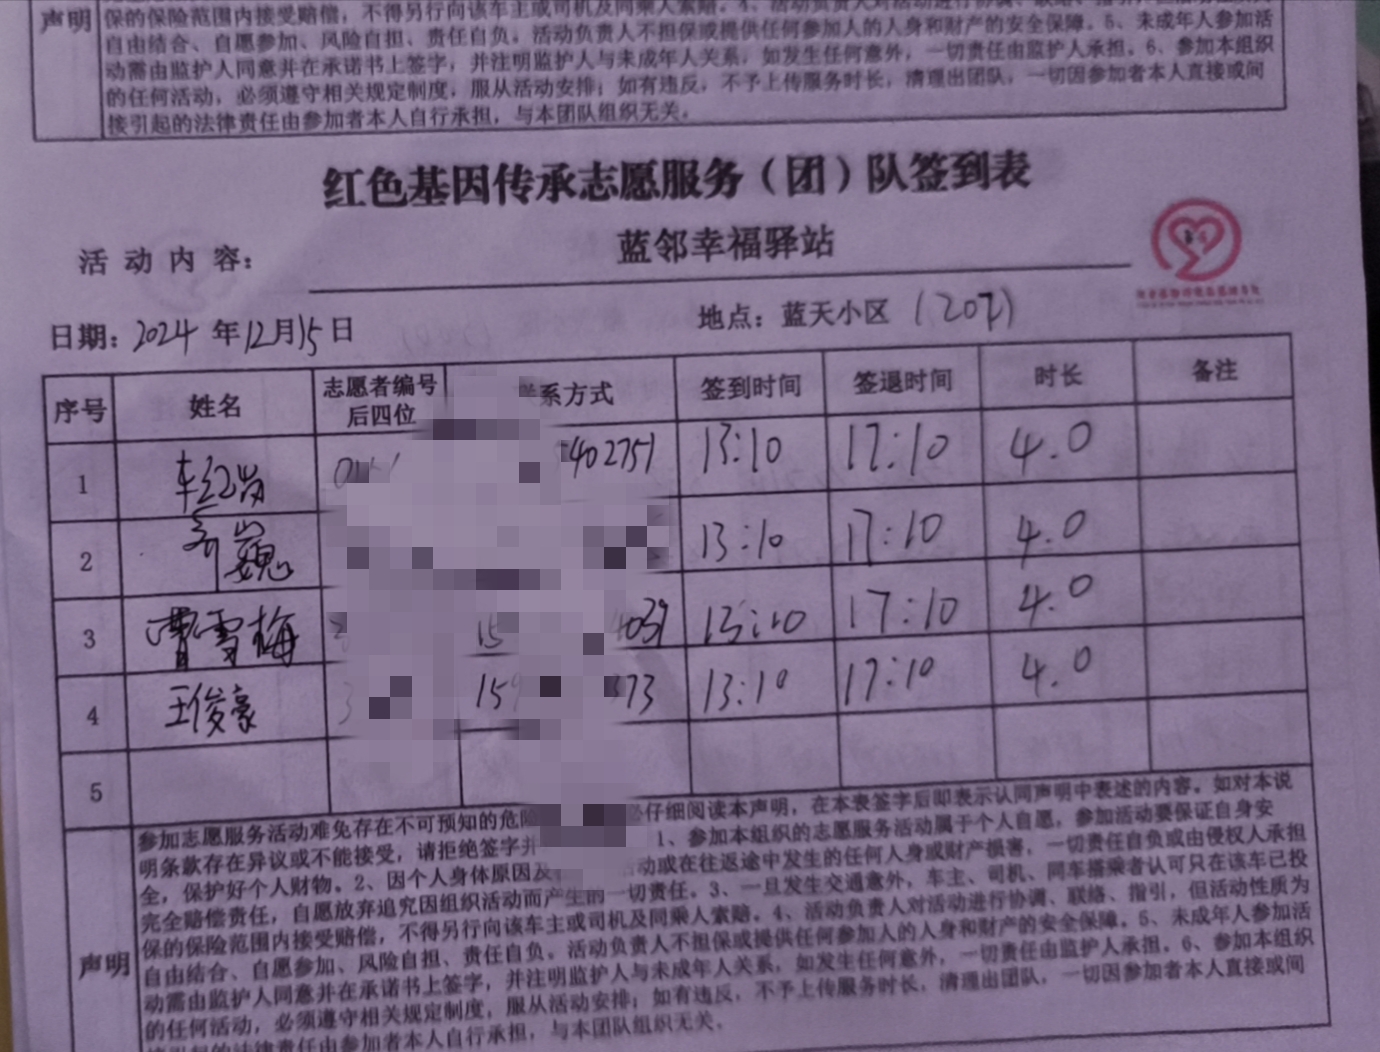 声明
保的保险范围内接受赔偿，不得另行向该车主或司机及同乘人索赔。4、活动负责人对活动进行协调、联络、指引，但活动性质为
自由结合、自愿参加、风险自担、责任自负。活动负责人不担保或提供任何参加人的人身和财产的安全保障。5、未成年人参加活
动需由监护人同意并在承诺书上签字，并注明监护人与未成年人关系，如发生任何意外，一切责任由监护人承担。6、参加本组织
的任何活动，必须遵守相关规定制度，服从活动安排；如有违反，不予上传服务时长，清理出团队，一切因参加者本人直接或间
接引起的法律责任由参加者本人自行承担，与本团队组织无关。
红色基因传承志愿服务（团）队签到表
活动内容： 蓝邻幸福驿站
日期：2024年12月15日 地点：蓝天小区（207）
序号 姓名 志愿者编号后四位 系方式 签到时间 签退时间 时长 备注
1 车红岩 402751 13:10 17:10 4.0
2 巍 13:10 17:10 4.0
3 曹雪梅 15 4039 13:10 17:10 4.0
4 王俊豪 3 159 873 13:10 17:10 4.0
5
声明
参加志愿服务活动难免存在不可预知的危险 必仔细阅读本声明，在本表签字后即表示认同声明中表述的内容。如对本说
明条款存在异议或不能接受，请拒绝签字并 1、参加本组织的志愿服务活动属于个人自愿，参加活动要保证自身安
全，保护好个人财物。2、因个人身体原因及 活动或在往返途中发生的任何人身或财产损害，一切责任自负或由侵权人承担
完全赔偿责任，自愿放弃追究因组织活动而产生的一切责任。3、一旦发生交通意外，车主、司机、同车搭乘者认可只在该车已投
保的保险范围内接受赔偿，不得另行向该车主或司机及同乘人索赔。4、活动负责人对活动进行协调、联络、指引，但活动性质为
自由结合、自愿参加、风险自担、责任自负。活动负责人不担保或提供任何参加人的人身和财产的安全保障。5、未成年人参加活
动需由监护人同意并在承诺书上签字，并注明监护人与未成年人关系，如发生任何意外，一切责任由监护人承担。6、参加本组织
的任何活动，必须遵守相关规定制度，服从活动安排；如有违反，不予上传服务时长，清理出团队，一切因参加者本人直接或间
接引起的法律责任由参加者本人自行承担，与本团队组织无关。